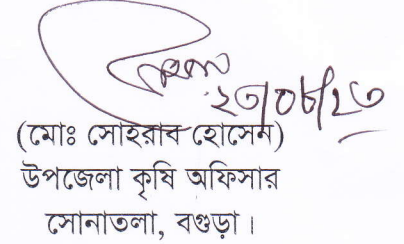 ২৩/০৮/২৩
(মোঃ সোহরাব হোসেন)
উপজেলা কৃষি অফিসার
সোনাতলা, বগুড়া।